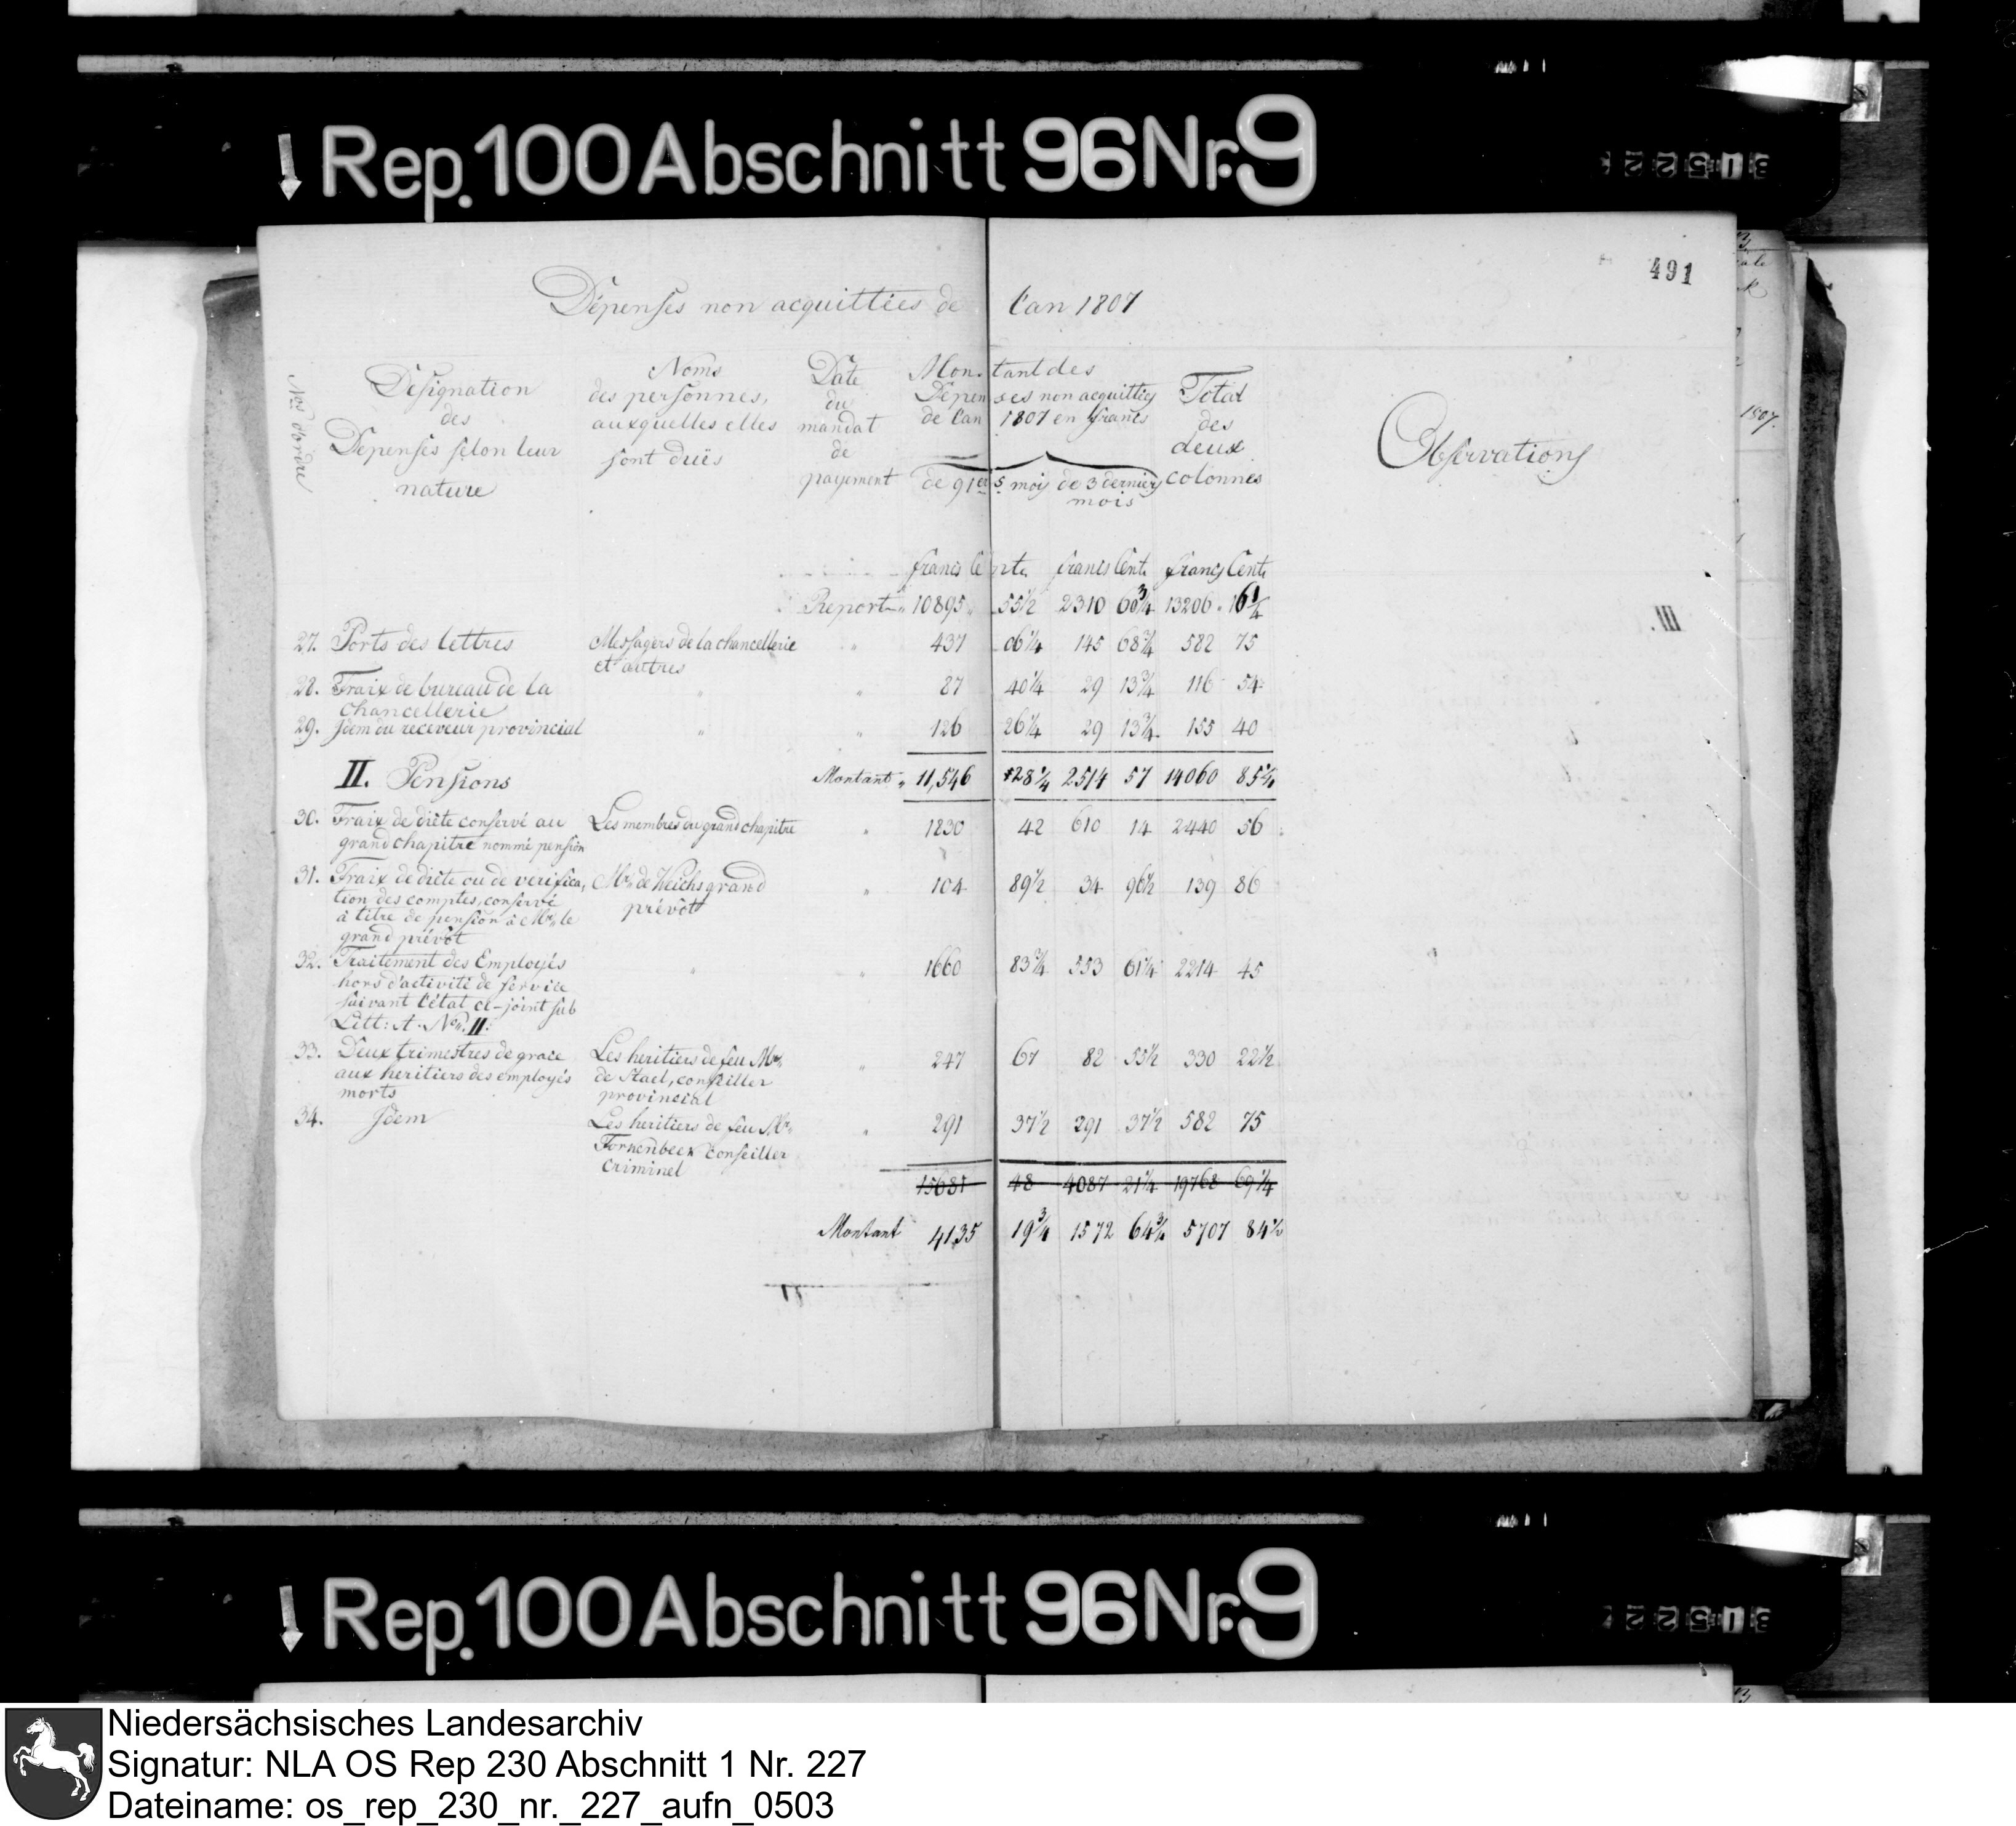 Rep. 100 Abschnitt 96 Nr. 9
31522
491
Dépenses non acquittées de l'an 1807
Nos d'ordre
Désignation
des
Dépenses selon leur
nature
Noms
des personnes,
auxquelles elles
sont duës
Date
du
mandat
de
payement
Montant des
Dépenses non acquittées
de l'an 1807 en francs
de 9 1ers mois de 3 derniers
mois
Total
des
deux
colonnes
Observations
1807.
francs Cents. francs Cents francs Cents
Report " 10895 " 55 1/2 2310 60 3/4 13206 " 16 1/4
III.
27. Ports des lettres Messagers de la chancellerie " 437 06 1/4 145 68 3/4 582 75
et autres
28. Fraix de bureau de la " " 87 40 1/4 29 13 3/4 116 54
chancellerie
29. Jdem du receveur provincial " " 126 26 1/4 29 13 3/4 155 40
II. Pensions Montant " 11,546 28 1/4 2514 57 14060 85 1/4
30. Fraix de diète conservé au Les membres du grand chapitre " 1830 42 610 14 2440 56
grand chapitre nommé pension
31. Fraix de diète ou de verifica, Mr. de Weichs grand " 104 89 1/2 34 96 1/2 139 86
tion des comptes, conservé prévôt
à titre de pension à Mr. le
grand prévôt
32. Traitement des Employés " " 1660 83 3/4 553 61 1/4 2214 45
hors d'activité de service
suivant l'état ci-joint sub
Litt: A. No. II:
33. Deux trimestres de grace Les heritiers de feu Mr. " 247 67 82 55 1/2 330 22 1/2
aux heritiers des employés de Stael, conseiller
morts provincial
34. Jdem Les heritiers de feu Mr. " 291 37 1/2 291 37 1/2 582 75
Forkenbeck conseiller
criminel
15681 48 4087 21 1/4 19768 69 1/4
Montant 4135 19 3/4 1572 64 3/4 5707 84 1/2
Rep. 100 Abschnitt 96 Nr. 9
31522
Niedersächsisches Landesarchiv
Signatur: NLA OS Rep 230 Abschnitt 1 Nr. 227
Dateiname: os_rep_230_nr._227_aufn_0503